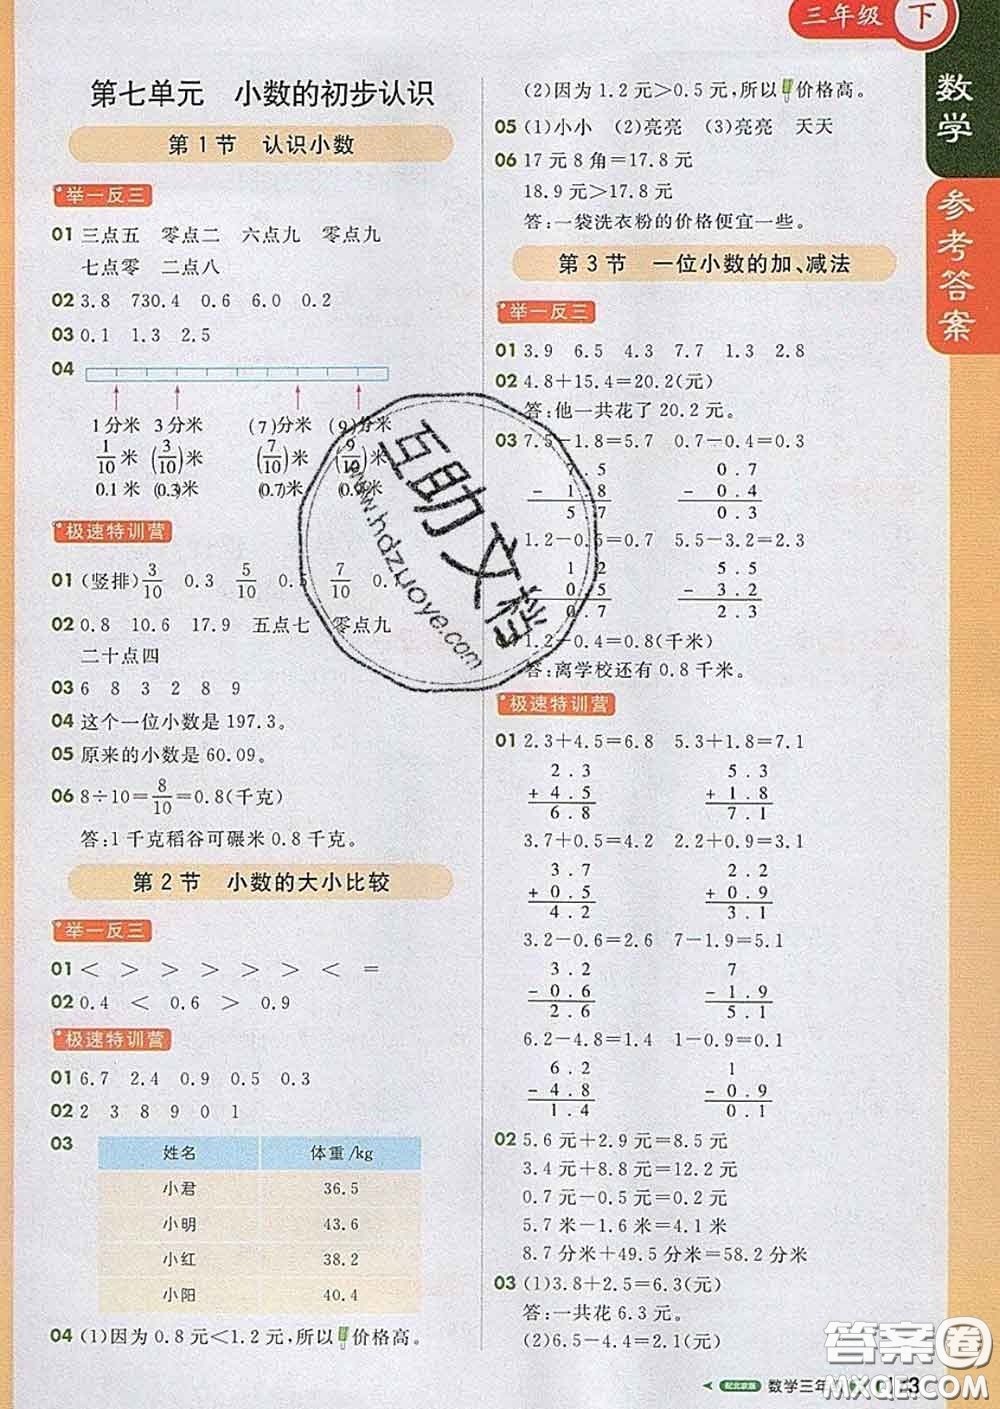 三年级 下
数学
参考答案
第七单元 小数的初步认识
第1节 认识小数
举一反三
01 三点五 零点二 六点九 零点九
七点零 二点八
02 3.8 730.4 0.6 6.0 0.2
03 0.1 1.3 2.5
04
1分米 3分米 (7)分米 (9)分米
1/10米 (3/10)米 (7/10)米 (9/10)米
0.1米 (0.3)米 (0.7)米
极速特训营
01 (竖排) 3/10 0.3 5/10 0.5 7/10
02 0.8 10.6 17.9 五点七 零点九
二十点四
03 6 8 3 2 8 9
04 这个一位小数是197.3。
05 原来的小数是60.09。
06 8÷10=8/10=0.8(千克)
答:1千克稻谷可碾米0.8千克。
第2节 小数的大小比较
举一反三
01 < > > > > > < =
02 0.4 < 0.6 > 0.9
极速特训营
01 6.7 2.4 0.9 0.5 0.3
02 2 3 8 9 0 1
03
姓名 体重/kg
小君 36.5
小明 43.6
小红 38.2
小阳 40.4
04 (1)因为0.8元<1.2元,所以 价格高。
(2)因为1.2元>0.5元,所以 价格高。
05 (1)小小 (2)亮亮 (3)亮亮 天天
06 17元8角=17.8元
18.9元>17.8元
答:一袋洗衣粉的价格便宜一些。
第3节 一位小数的加、减法
举一反三
01 3.9 6.5 4.3 7.7 1.3 2.8
02 4.8+15.4=20.2(元)
答:他一共花了20.2元。
03 7.5-1.8=5.7 0.7-0.4=0.3
.5 0.7
- 1.8 - 0.4
5.7 0.3
1.2-0.5=0.7 5.5-3.2=2.3
1.2 5.5
0.5 - 3.2
0.7 2.3
1.2-0.4=0.8(千米)
答:离学校还有0.8千米。
极速特训营
01 2.3+4.5=6.8 5.3+1.8=7.1
2.3 5.3
+ 4.5 + 1.8
6.8 7.1
3.7+0.5=4.2 2.2+0.9=3.1
3.7 2.2
+ 0.5 + 0.9
4.2 3.1
3.2-0.6=2.6 7-1.9=5.1
3.2 7
- 0.6 - 1.9
2.6 5.1
6.2-4.8=1.4 1-0.9=0.1
6.2 1
- 4.8 - 0.9
1.4 0.1
02 5.6元+2.9元=8.5元
3.4元+8.8元=12.2元
0.7元-0.5元=0.2元
5.7米-1.6米=4.1米
8.7分米+49.5分米=58.2分米
03 (1)3.8+2.5=6.3(元)
答:一共花6.3元。
(2)6.5-4.4=2.1(元)
配北京版 数学三年
3
互助文档
www.hdzuoye.com
答案圈
MXQE.COM